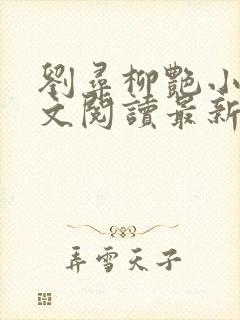 劉尋柳艷小
文閱讀最新
弄雪天子